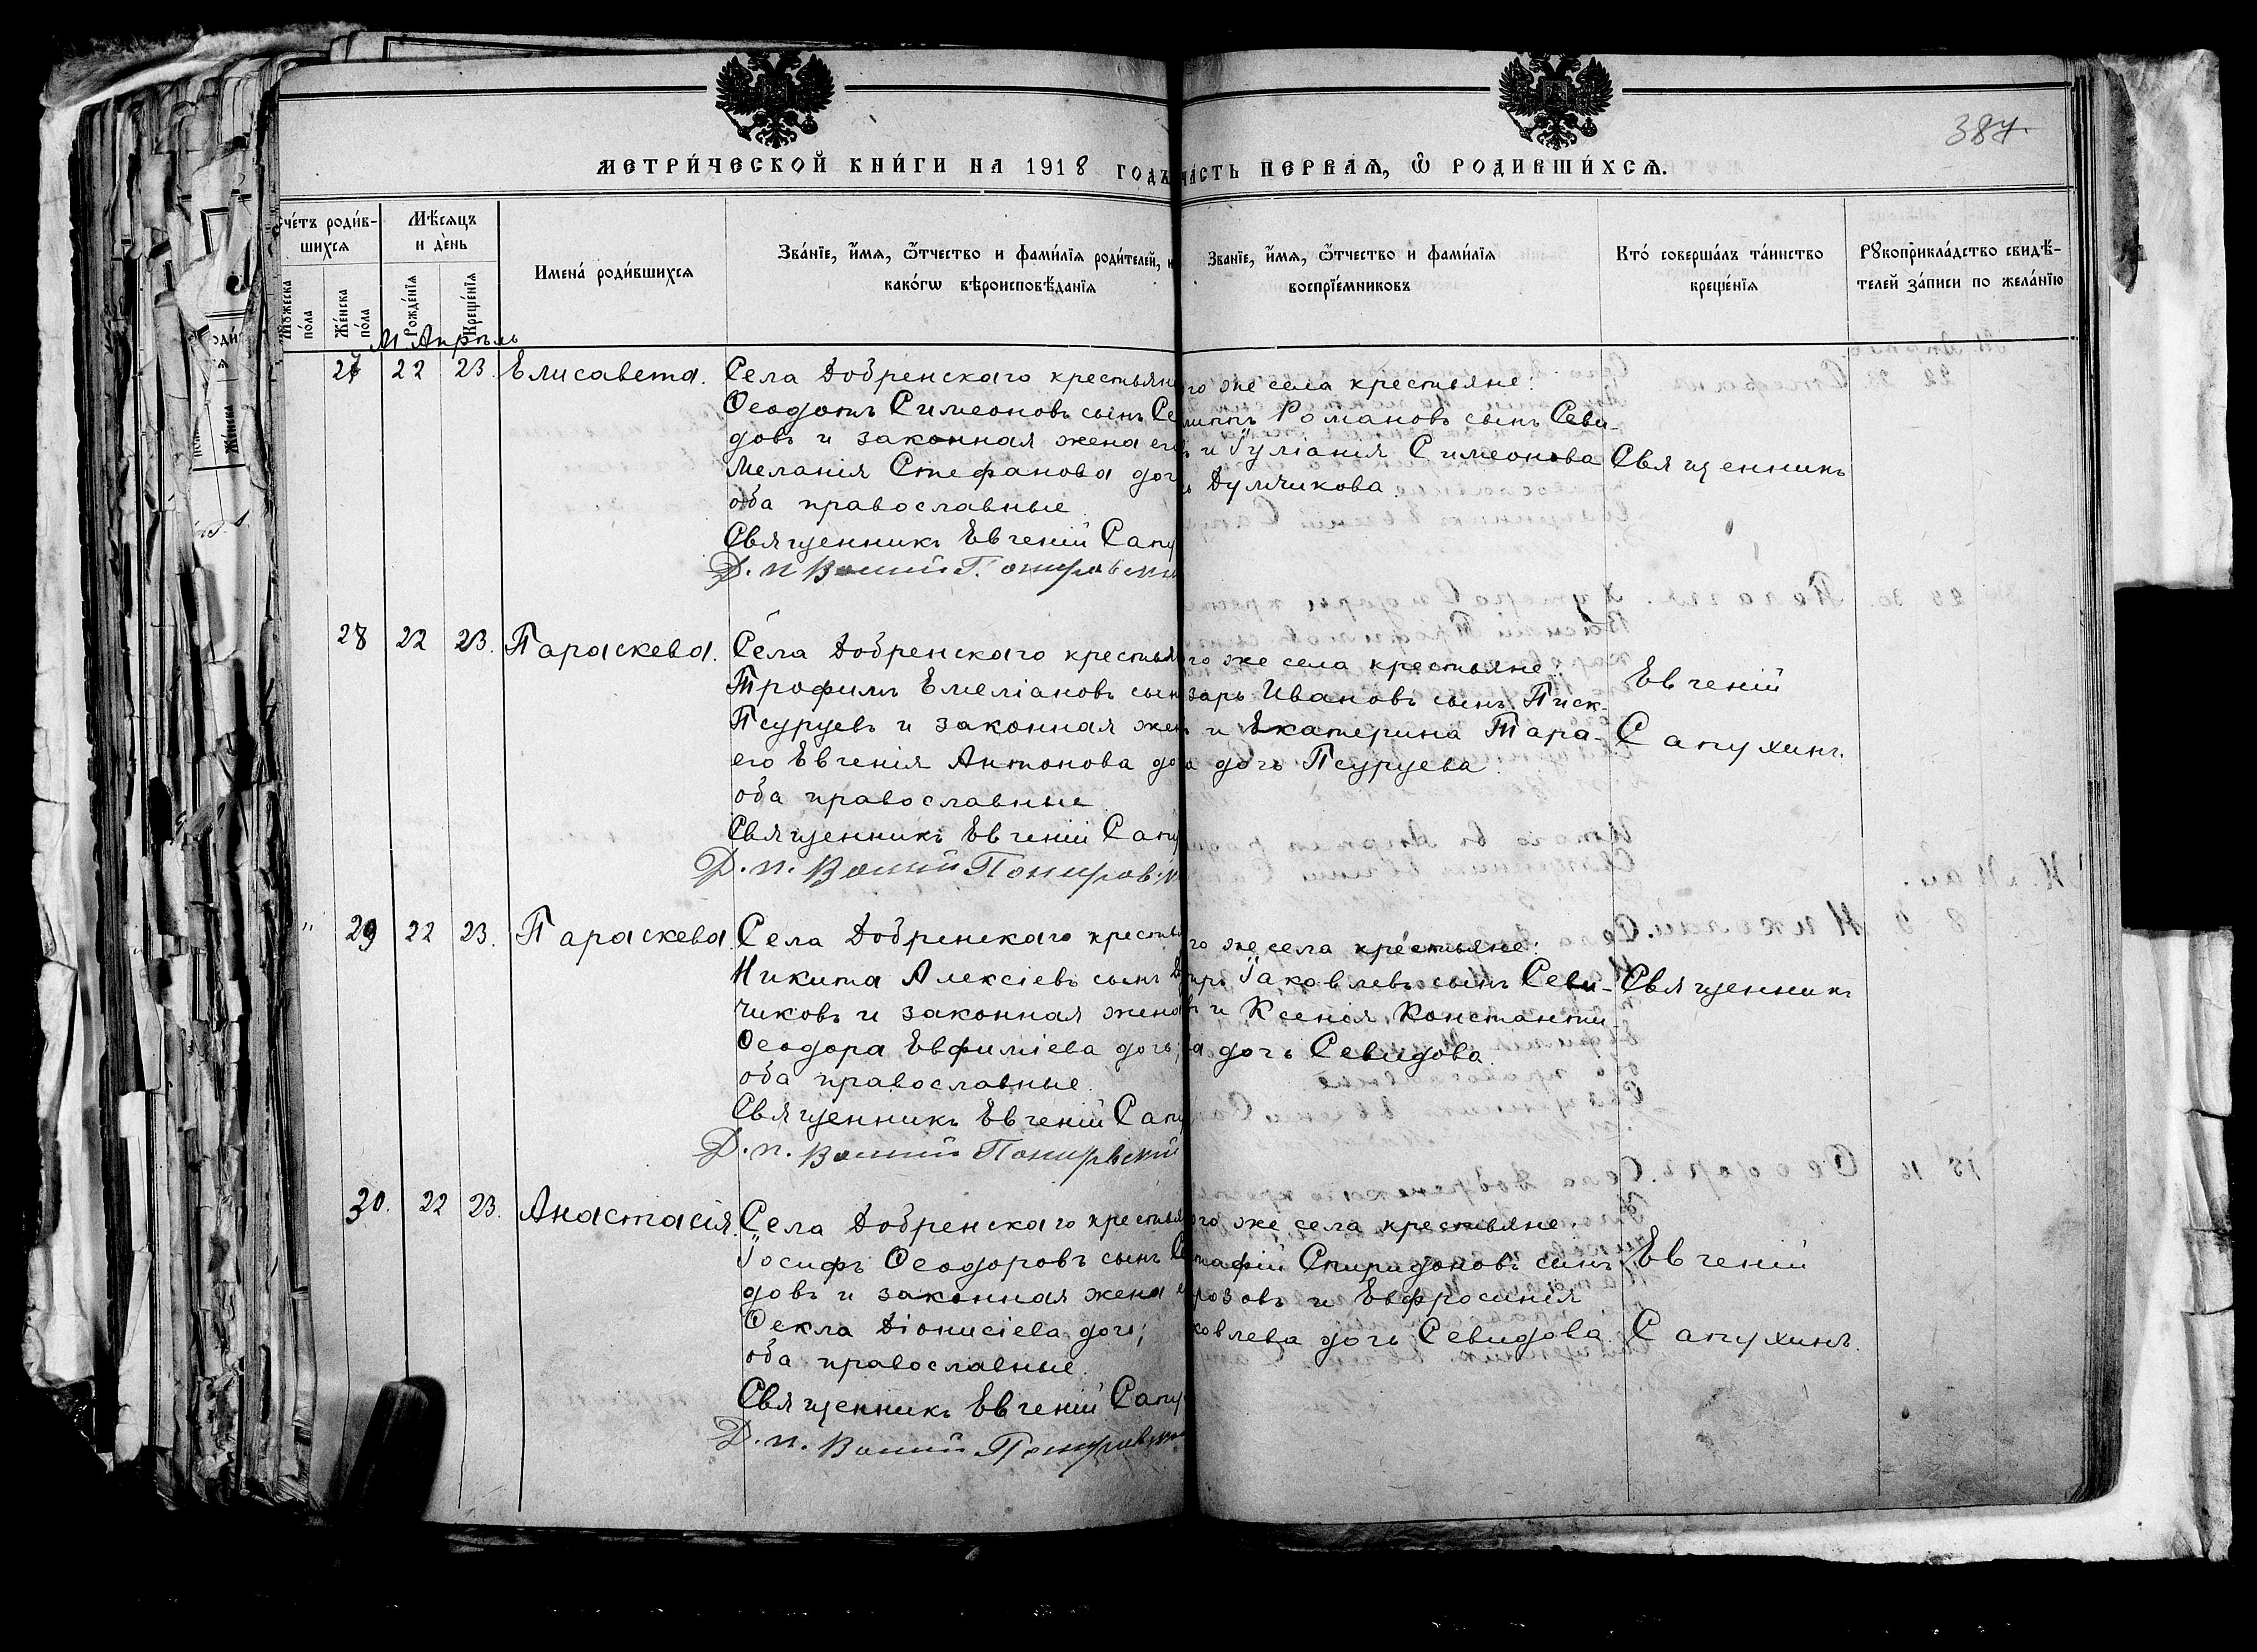 387.
МЕТРИ́ЧЕСКОЙ КНИ́ГИ НА 1918 ГОДЪ
ЧА́СТЬ ПЕРВАѦ, Ѽ РОДИВШИ́ХСѦ.
счéтъ роди́в-
шихся
Мѹ́жеска
по́ла
Же́нска
по́ла
Мѣ́сяцъ
и де́нь
Рожде́нїѧ
Креще́нїѧ
Имена́ роди́вшихся
Зва́нїе, и҆́мѧ, ѿтчество и фами́лїѧ роди́телей, и
како́гѡ вѣроисповѣ́данїѧ
Зва́нїе, и҆́мѧ, ѿтчество и фами́лїѧ
воспрїе́мниковъ
Кто́ соверша́лъ та́инство
креще́нїѧ
Рѹкоприкла́дство свидѣ́-
телей за́писи по жела́нїю
М Апрѣль
27 22 23. Елисавета.
Села Добренскаго крестьян
Ѳеодотъ Симеоновъ сынъ Се
довъ и законная жена его
Меланія Стефанова доч
оба православные
Священникъ Евгеній Сапу
го же села крестьяне:
липпъ Романовъ сынъ Севи-
ъ и Іуліанія Симеонова
ь Думчикова.
Священникъ
28 22 23. Параскева.
Села Добренскаго крестья
Трофимъ Емеліановъ сын
Псуруевъ и законная жен
его Евгенія Антонова до
оба православные
Священникъ Евгеній Сапу
го же села крестьяне:
зарь Ивановъ сынъ Писк-
ъ и Екатерина Тара-
а дочь Псуруева.
Евгеній
Сапухинъ.
" 29 22 23. Параскева
Села Добренскаго крестья
Никита Алексіевъ сынъ Д
чиковъ и законная жена
Ѳеодора Евфиміева дочь;
оба православные.
Священникъ Евгеній Сапу
го же села крестьяне:
тръ Іаковлевъ сынъ Севи-
ъ и Ксенія Константи-
а дочь Севидова.
Священникъ
30. 22 23. Анастасія.
Села Добренскаго крестья
Іосифъ Ѳеодоровъ сынъ Се
довъ и законная жена е
Ѳекла Діонисіева дочь;
оба православные.
Священникъ Евгеній Сапу
ого же села крестьяне:
тафій Спиридоновъ сынъ
розовъ и Евфросинія
ковлева дочь Севидова.
Евгеній
Сапухинъ.